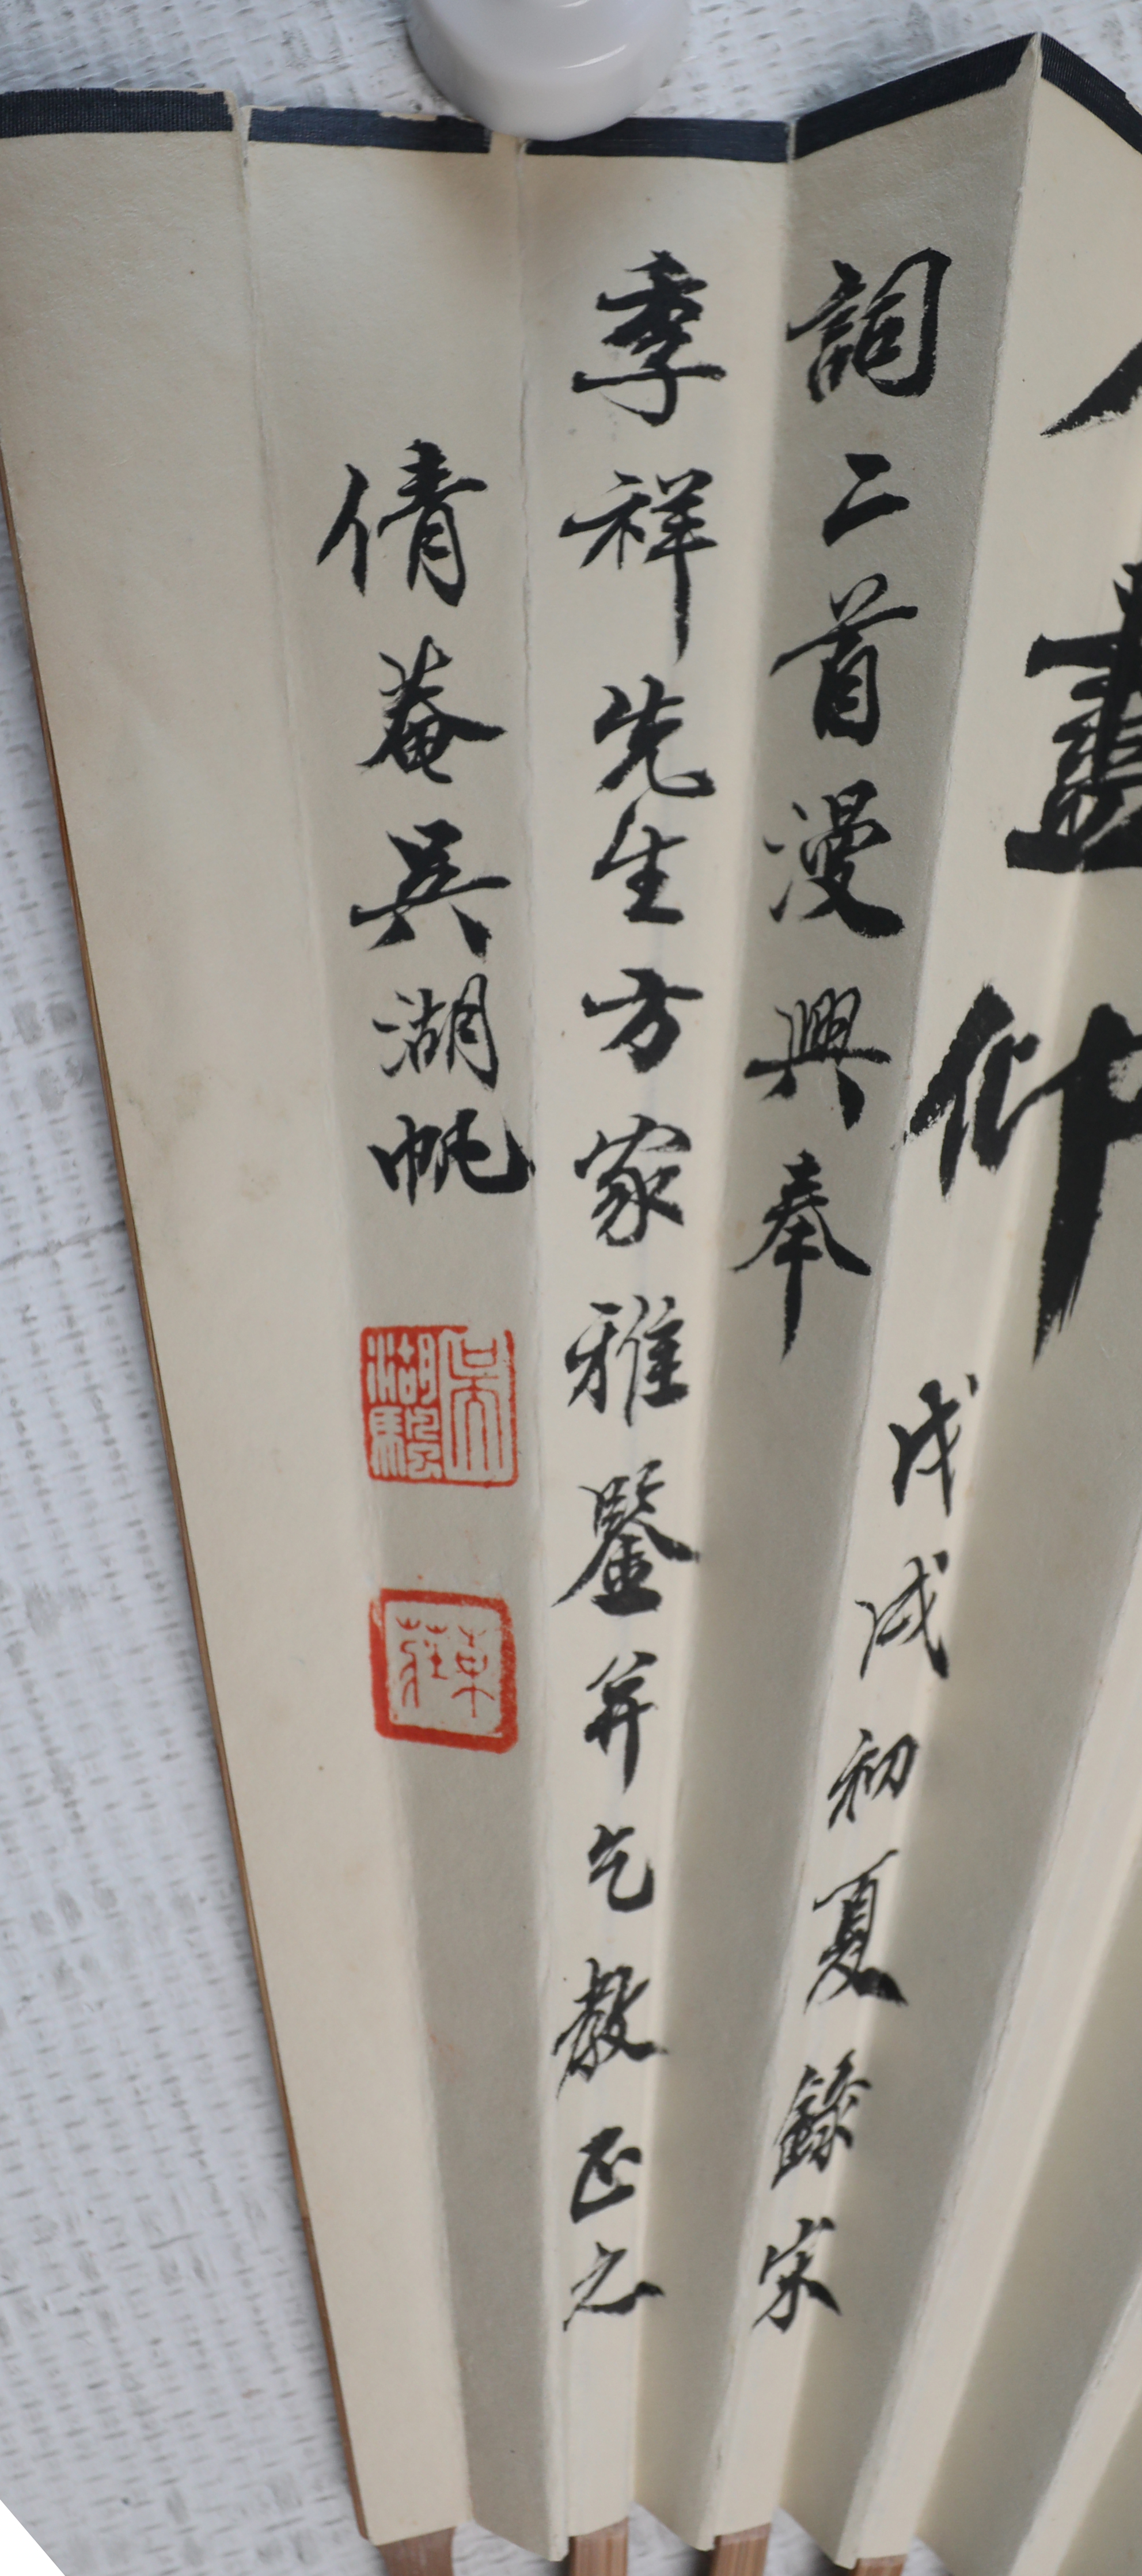 仰
戊戌初夏錄宋
詞二首漫興奉
季祥先生方家雅鑒并乞教正之
倩菴吳湖帆
吳湖颿